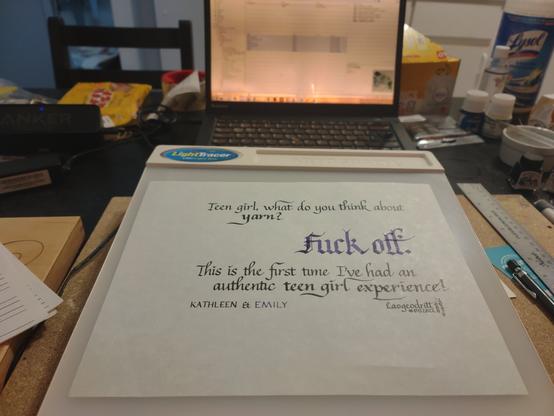 Lysol
ANKER
LightTracer
Teen girl, what do you think about
yarn?
Fuck off.
This is the first time I've had an
authentic teen girl experience!
KATHLEEN & EMILY